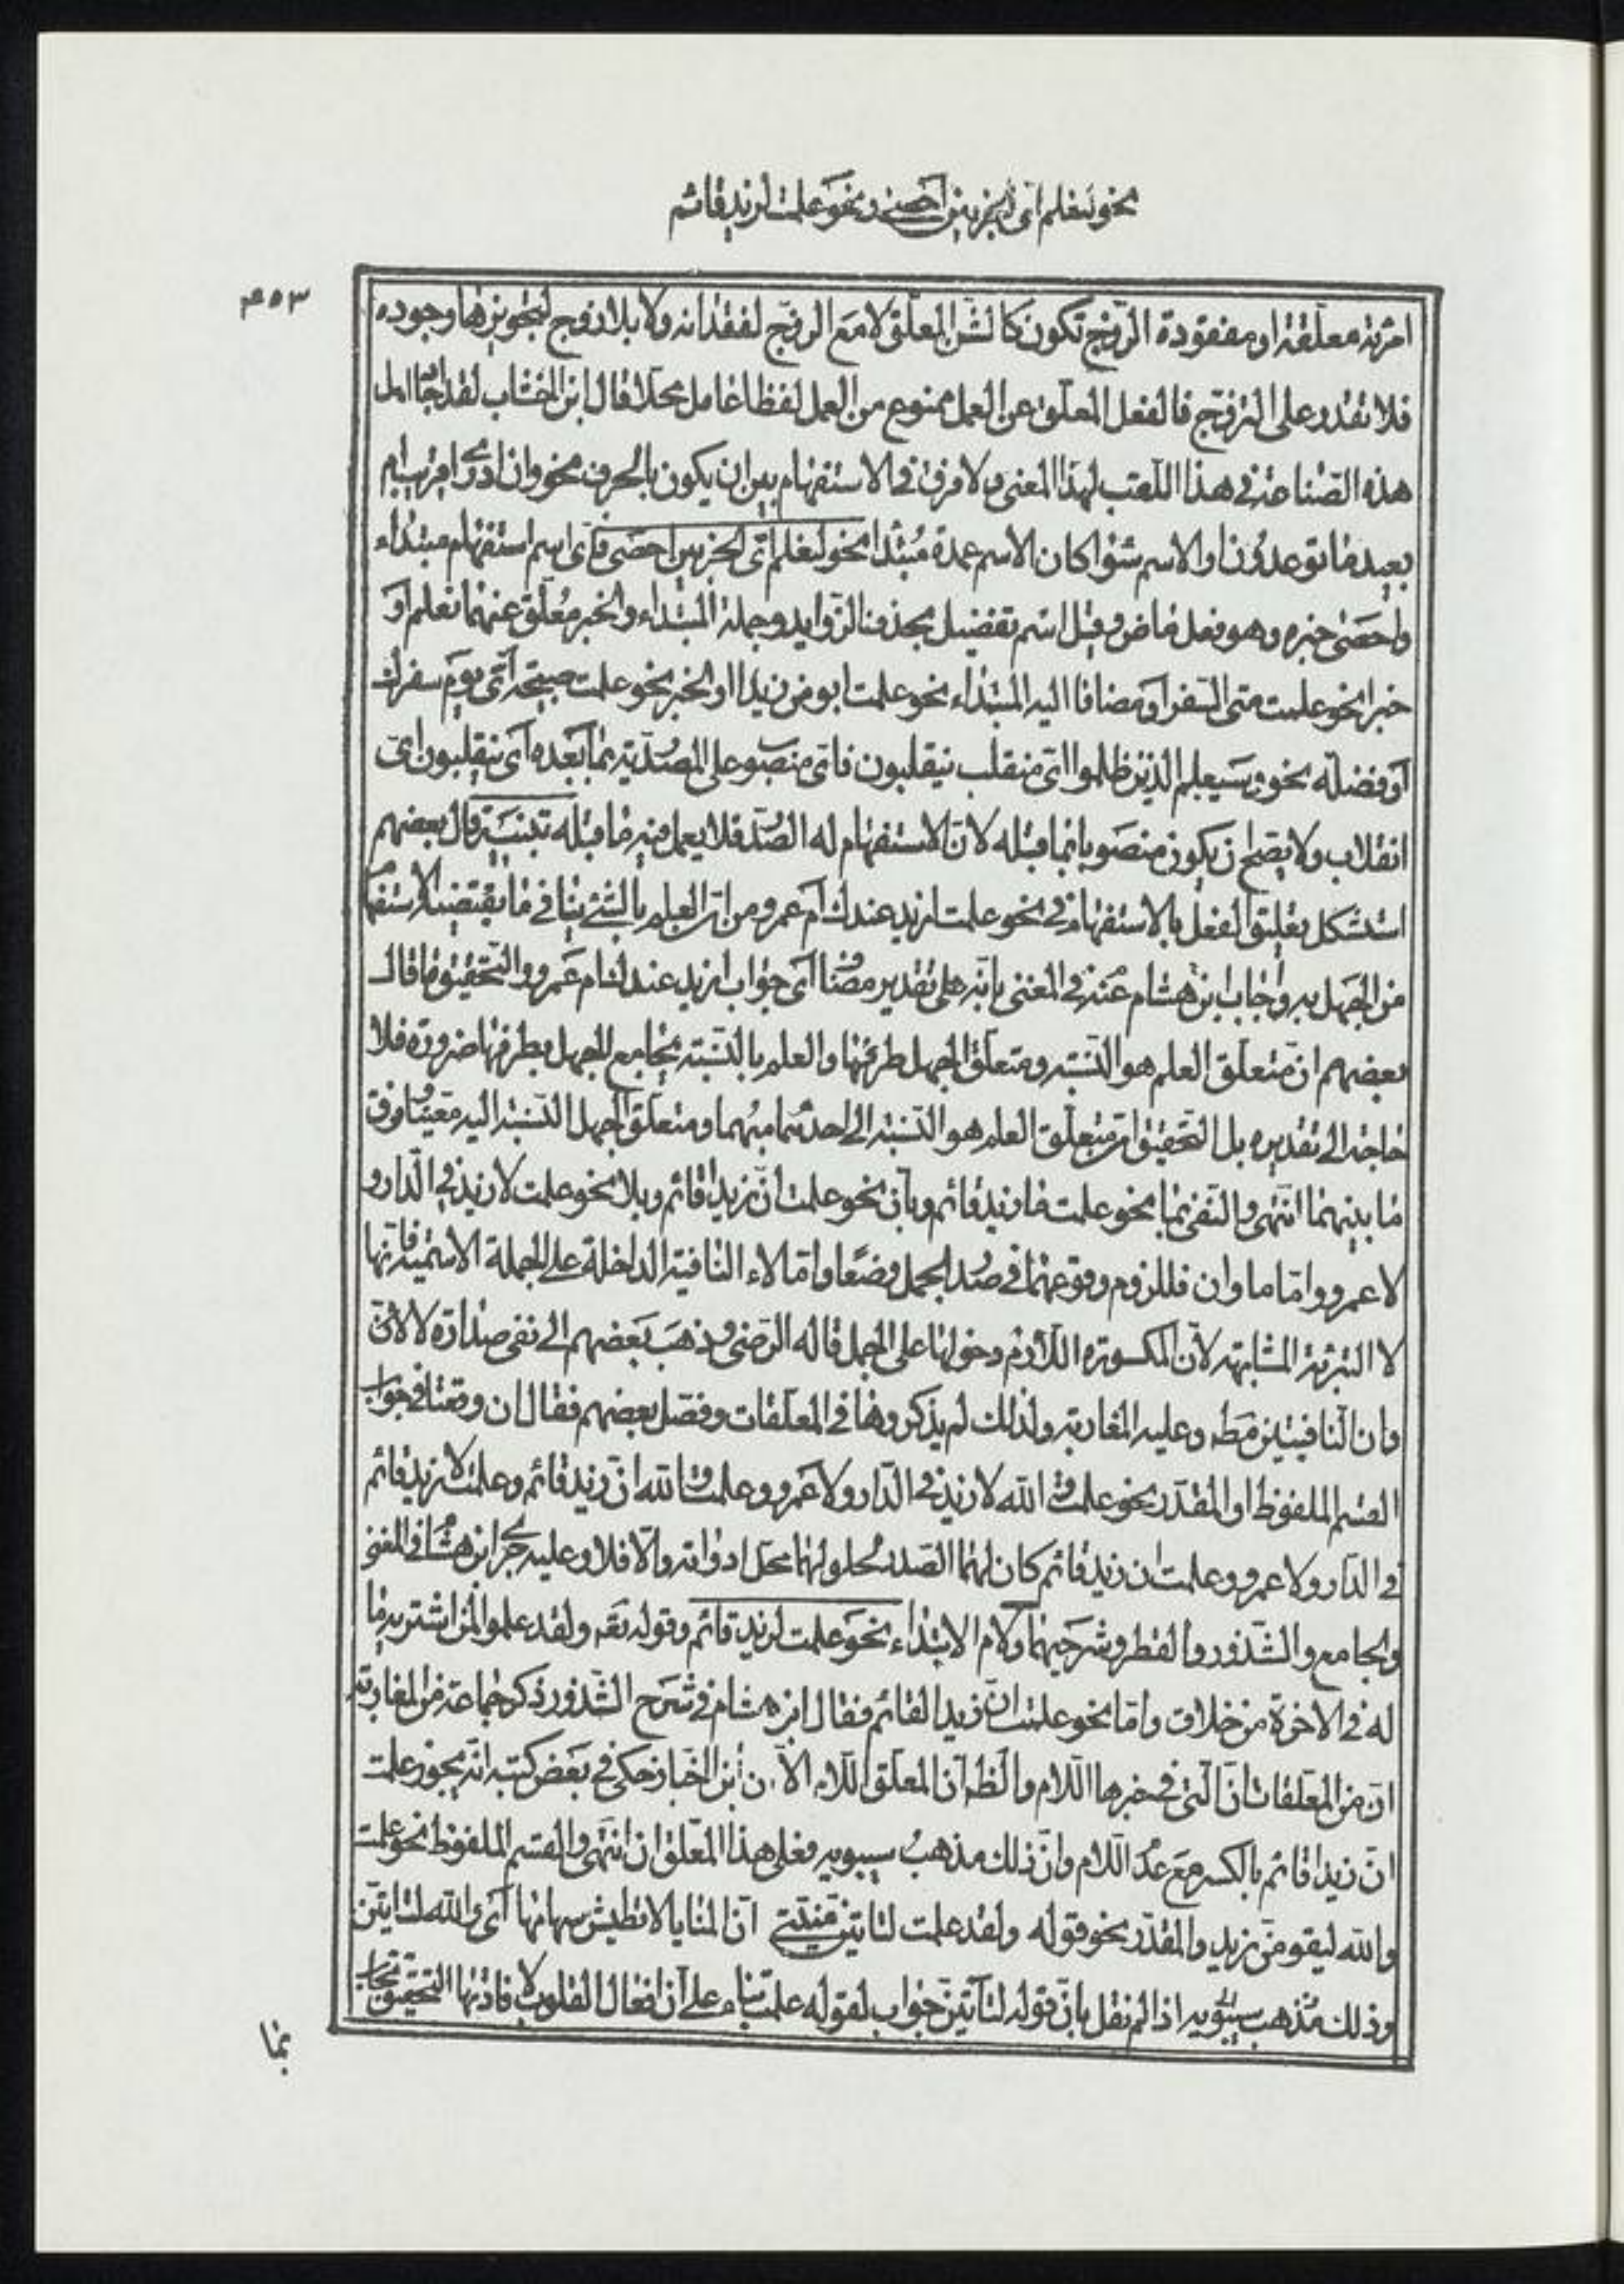 نحو لنعلم اى الحزبين احصى ونحو علمت لزيد قائم
٤٥٣
امرئة معلّقة او مفقودة الزّوج تكون كالشئ المعلّق لا مع الزّوج لفقدانه ولا بلا زوج لتجويزها وجوده
فلا تقدر على التزوّج فالفعل المعلّق عن العمل ممنوع من العمل لفظا عامل محلا قال ابن الخشاب لقد اجاد اهل
هذه الصّناعة فى هذا اللّقب لهذا المعنى ولا فرق فى الاستفهام بين ان يكون بالحرف نحو وان ادرى اقريب ام
بعيد ما توعدون او الاسم سوٓا كان الاسم عمدة مبتدا نحو لنعلم اىّ الحزبين احصى فاى اسم استفهام مبتداء
واحصى خبره وهو فعل ماض وقيل اسم تفضيل بحذف الزّوايد وجملة المبتداء والخبر معلّق عنهما نعلم او
خبرا نحو علمت متى السّفر او مضافا اليه المبتداء نحو علمت ابو من زيد او الخبر نحو علمت صبيحة اىّ يوم سفرك
او فضلة نحو وسيعلم الذين ظلموا اىّ منقلب ينقلبون فاىّ منصوب على المصدريّة بما بعده اى ينقلبون اىّ
انقلاب ولا يصح ان يكون منصوبا بما قبله لانّ الاستفهام له الصّدر فلا يعمل فيه ما قبله تنبيه قال بعضهم
استشكل تعليق الفعل بالاستفهام فى نحو علمت ازيد عندك ام عمرو من انّ العلم بالشئ ينافى ما يقتضيه الاستفهام
من الجهل به واجاب ابن هشام عنه فى المغنى بانّه على تقدير مضاف اى جواب ازيد عندك ام عمرو والتحقيق ما قال
بعضهم انّ متعلّق العلم هو النّسبة ومتعلّق الجهل طرفها والعلم بالنّسبة يجامع الجهل بطرفها ضرورة فلا
حاجة الى تقديره بل التحقيق انّ متعلّق العلم هو النّسبة الى احدهما مبهما ومتعلّق الجهل النّسبة اليه معيّنا وفرق
ما بينهما انتهى والنّفى بما نحو علمت ما زيد قائم وبان نحو علمت ان زيد قائم وبلا نحو علمت لا زيد فى الدّار و
لا عمرو وامّا ما وان فللزوم وقوعهما فى صدر الجمل وضعا وامّا لاء النافية الداخلة على الجملة الاسميّة فانها
لا التبرئة المشابهة لانّ المكسورة اللّازم دخولها على الجمل قاله الرّضى وذهب بعضهم الى نفى صدارة لا لانّ
وان النّافيتين مطه وعليه المغاربة ولذلك لم يذكروها فى المعلّقات وفصّل بعضهم فقال ان وقعتا فى جواب
القسم الملفوظ او المقدّر نحو علمت والله لا زيد فى الدّار ولا عمرو وعلمت والله ان زيد قائم وعلمت لا زيد قائم
فى الدّار ولا عمرو وعلمت ان زيد قائم كان لهما الصّدر لحلولهما محل ادواته والّا فلا وعليه جرى ابن هشام فى المغنى
والجامع والشّذور والقطر وشرحيهما ولام الابتداء نحو علمت لزيد قائم وقوله تعه ولقد علموا لمن اشتريه ما
له فى الاخرة من خلاق وامّا نحو علمت انّ زيدا لقائم فقال ابن هشام فى شرح الشّذور ذكر جماعة من المغاربة
انّ من المعلّقات انّ الّتى فى خبرها اللّام والظه انّ المعلّق اللّام الّا ان ابن الخباز حكى فى بعض كتبه انّه يجوز علمت
انّ زيدا قائم بالكسر مع عدم اللّام وانّ ذلك مذهب سيبويه فعلى هذا المعلّق ان انتهى والقسم الملفوظ نحو علمت
والله ليقومنّ زيد والمقدّر نحو قوله ولقد علمت لتاتينّ منيّتى انّ المنايا لا تطيش سهامها اى والله لتاتينّ
وذلك مذهب سيبويه اذا لم نقل بانّ قوله لتاتينّ جواب لقوله علمت بناء على انّ افعال القلوب لافادتها التحقيق تجاب
بما